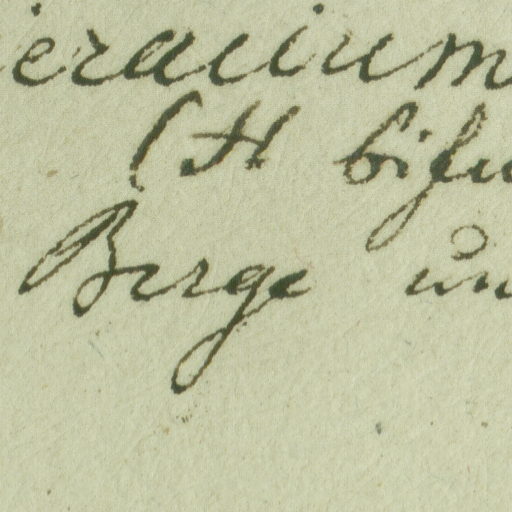 ieracium
(H bifu
Berge un